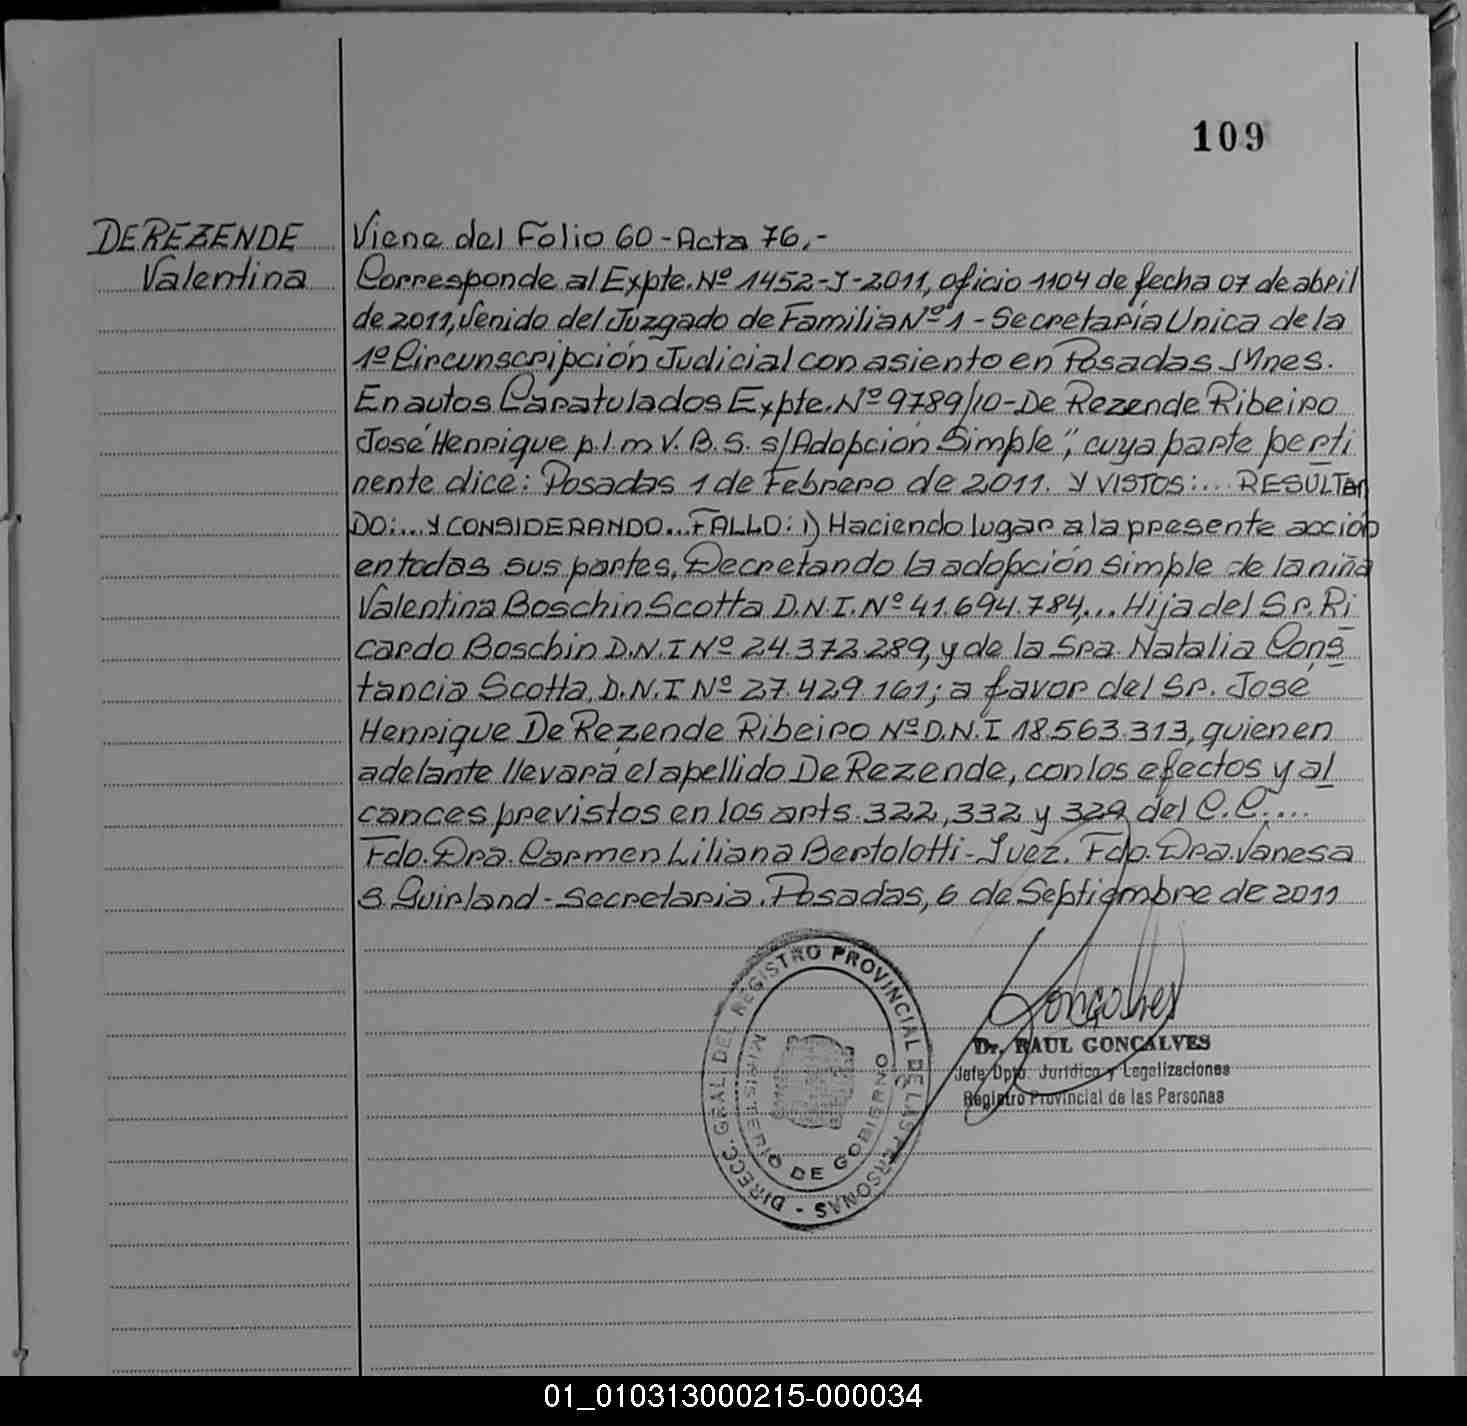 109
DE REZENDE
Valentina
Viene del Folio 60 - Acta 76.-
Corresponde al Expte. Nº 1452-J-2011, oficio 1104 de fecha 07 de abril
de 2011, Venido del Juzgado de Familia Nº 1 - Secretaría Unica de la
1º Circunscripción Judicial con asiento en Posadas Mnes.
En autos Caratulados Expte. Nº 9789/10 - De Rezende Ribeiro
José Henrique p.l.m V. B. S. s/Adopción Simple", cuya parte perti
nente dice: Posadas 1 de Febrero de 2011. Y VISTOS:... RESULTAN
DO:... Y CONSIDERANDO... FALLO: 1) Haciendo lugar a la presente acción
en todas sus partes, Decretando la adopción simple de la niña
Valentina Boschin Scotta D.N.I. Nº 41.694.784,... Hija del Sr. Ri
cardo Boschin D.N.I Nº 24.372.289, y de la Sra. Natalia Cons
tancia Scotta, D.N.I Nº 27.429.161; a favor del Sr. José
Henrique De Rezende Ribeiro Nº D.N.I 18.563.313, quien en
adelante llevará el apellido De Rezende, con los efectos y al
cances previstos en los arts. 322, 332 y 329 del C.C....
Fdo. Dra. Carmen Liliana Bertolotti - Juez. Fdo. Dra. Vanesa
S. Guirland - Secretaria. Posadas, 6 de Septiembre de 2011
DIRECC. GRAL. DEL REGISTRO PROVINCIAL DE LAS PERSONAS -
MINISTERIO DE GOBIERNO
Goncalves
Dr. RAUL GONCALVES
Jefe Dpto. Jurídico y Legalizaciones
Registro Provincial de las Personas
01_010313000215-000034